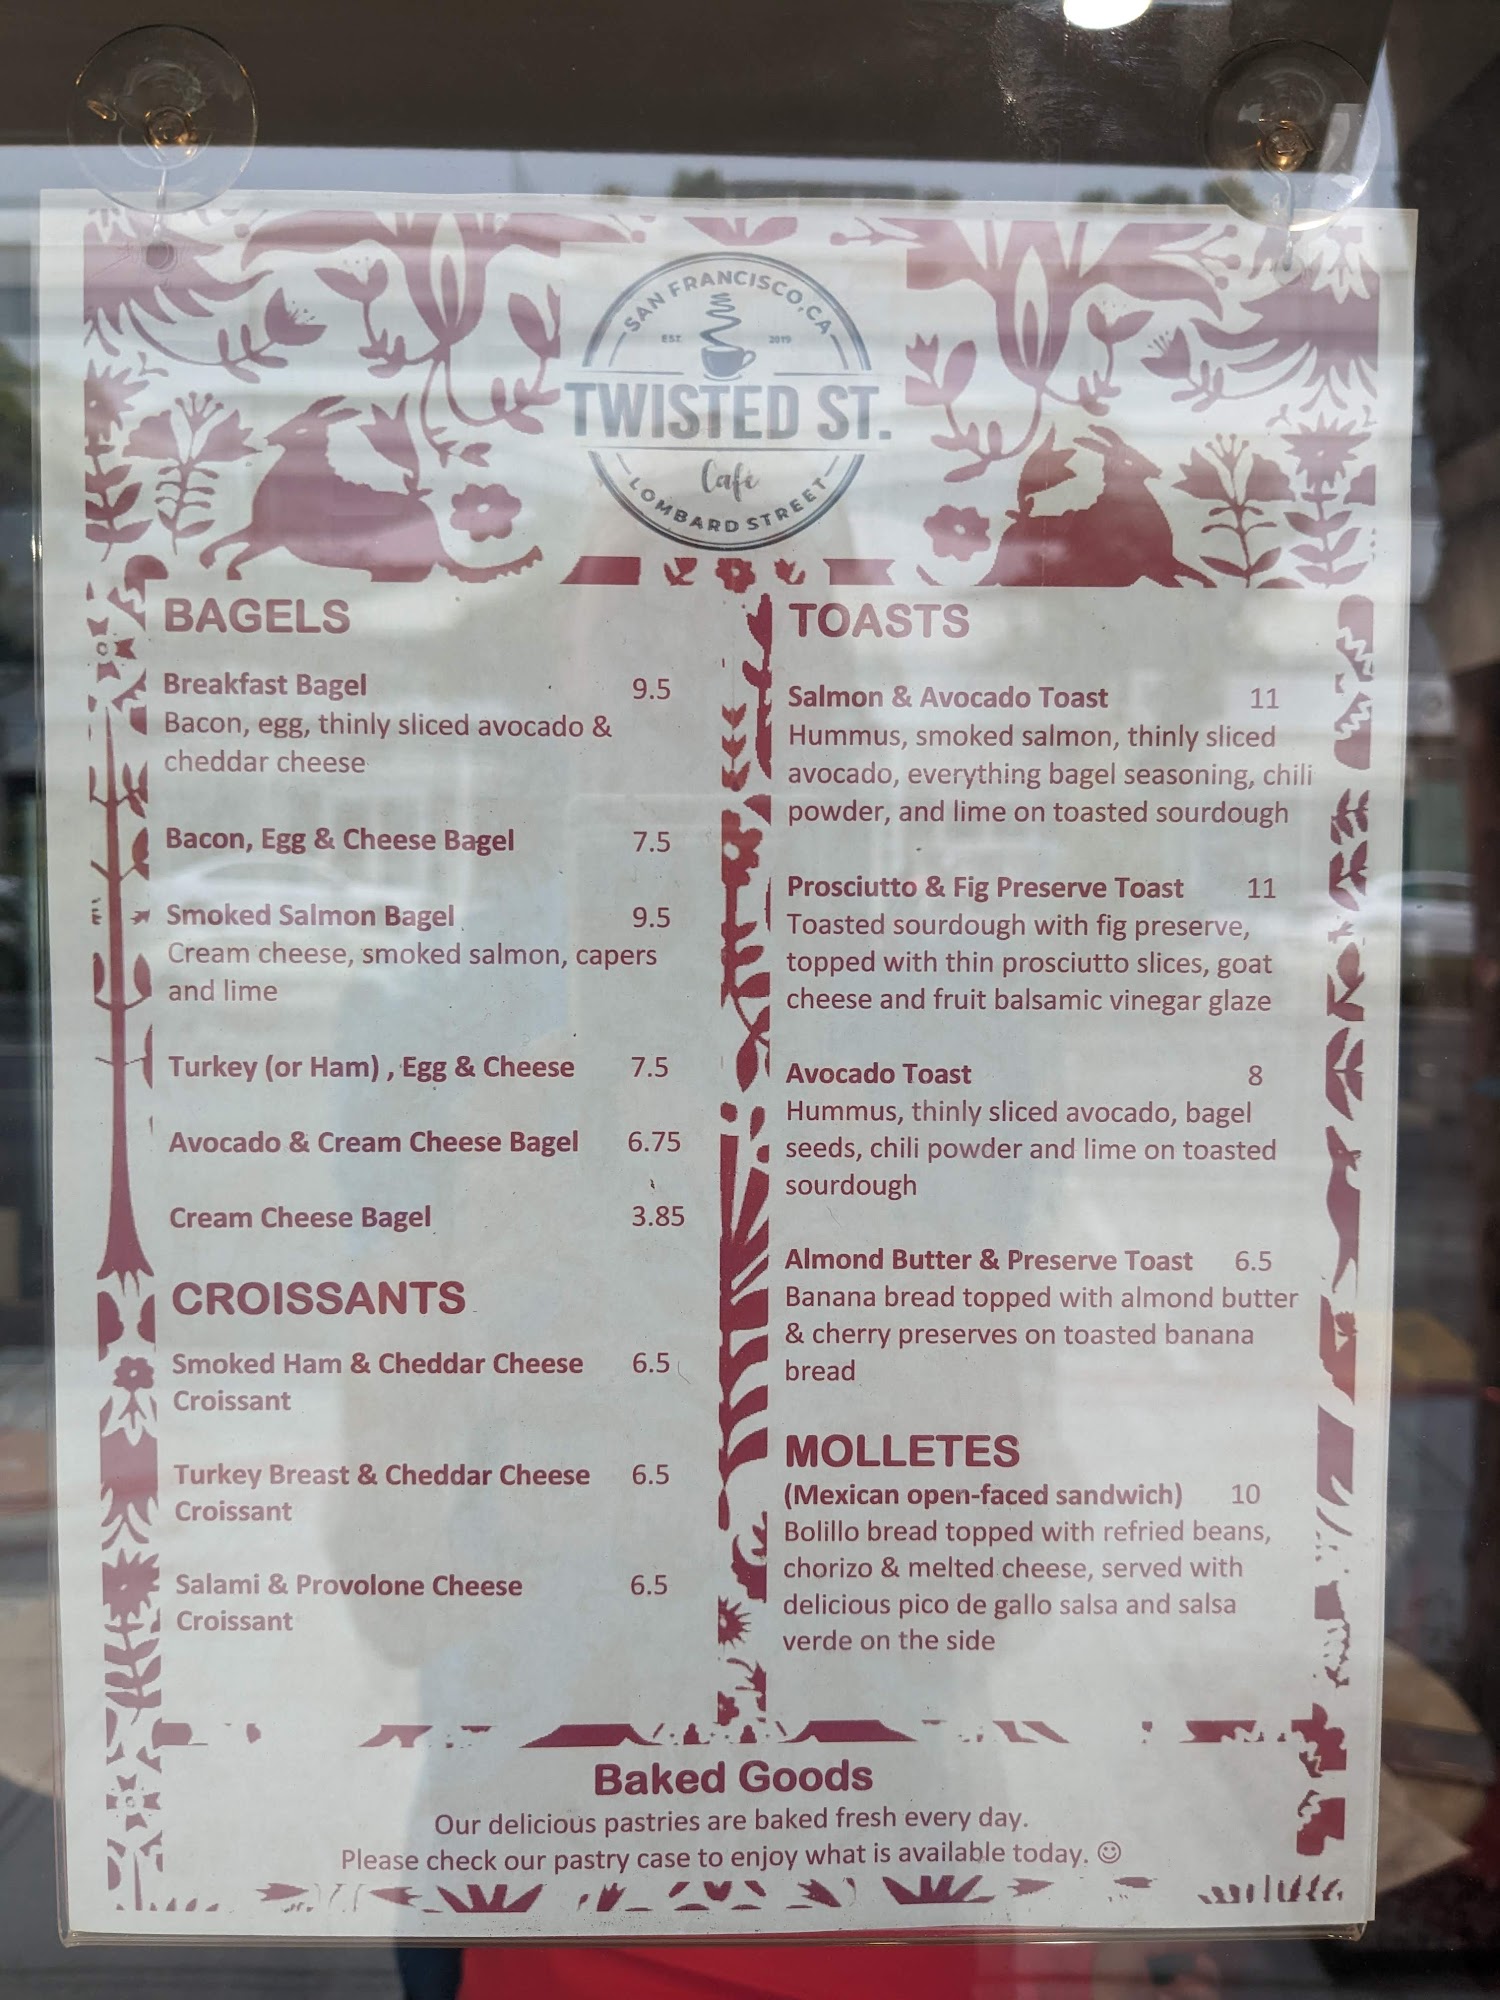 SAN FRANCISCO, CA
EST. 2019
TWISTED ST.
Café
LOMBARD STREET
BAGELS
Breakfast Bagel 9.5
Bacon, egg, thinly sliced avocado &
cheddar cheese
Bacon, Egg & Cheese Bagel 7.5
Smoked Salmon Bagel 9.5
Cream cheese, smoked salmon, capers
and lime
Turkey (or Ham) , Egg & Cheese 7.5
Avocado & Cream Cheese Bagel 6.75
Cream Cheese Bagel 3.85
CROISSANTS
Smoked Ham & Cheddar Cheese 6.5
Croissant
Turkey Breast & Cheddar Cheese 6.5
Croissant
Salami & Provolone Cheese 6.5
Croissant
TOASTS
Salmon & Avocado Toast 11
Hummus, smoked salmon, thinly sliced
avocado, everything bagel seasoning, chili
powder, and lime on toasted sourdough
Prosciutto & Fig Preserve Toast 11
Toasted sourdough with fig preserve,
topped with thin prosciutto slices, goat
cheese and fruit balsamic vinegar glaze
Avocado Toast 8
Hummus, thinly sliced avocado, bagel
seeds, chili powder and lime on toasted
sourdough
Almond Butter & Preserve Toast 6.5
Banana bread topped with almond butter
& cherry preserves on toasted banana
bread
MOLLETES
(Mexican open-faced sandwich) 10
Bolillo bread topped with refried beans,
chorizo & melted cheese, served with
delicious pico de gallo salsa and salsa
verde on the side
Baked Goods
Our delicious pastries are baked fresh every day.
Please check our pastry case to enjoy what is available today. ☺